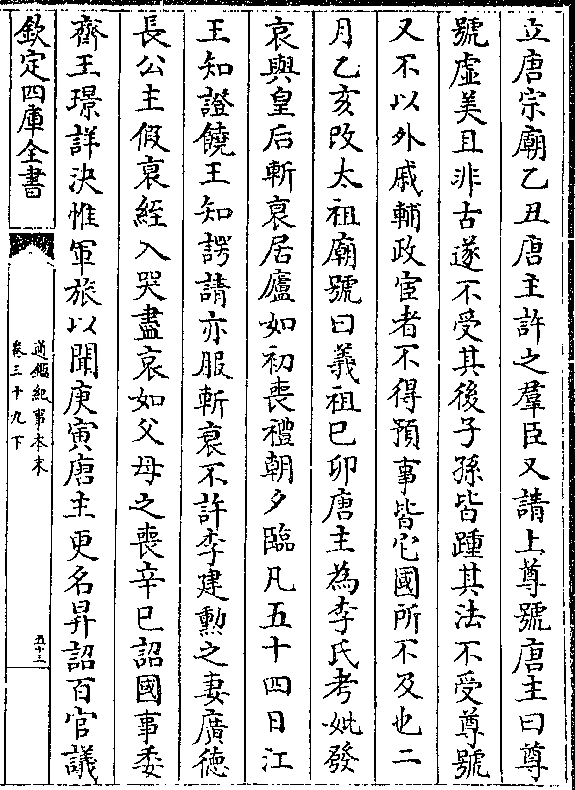 立唐宗廟乙丑唐主許之羣臣又請上尊號唐主曰尊
號虚美且非古遂不受其後子孫皆踵其法不受尊號
又不以外戚輔政宦者不得預事皆它國所不及也二
月乙亥改太祖廟號曰義祖已卯唐主為李氏考妣發
哀與皇后斬衰居廬如初喪禮朝夕臨凡五十四日江
王知證饒王知諤請亦服斬衰不許李建勲之妻廣徳
長公主假衰絰入哭盡哀如父母之喪辛巳詔國事委
齊王璟詳決惟軍旅以聞庚寅唐主更名昪詔百官議
欽定四庫全書
通鑑紀事本末
卷三十九下
五十三